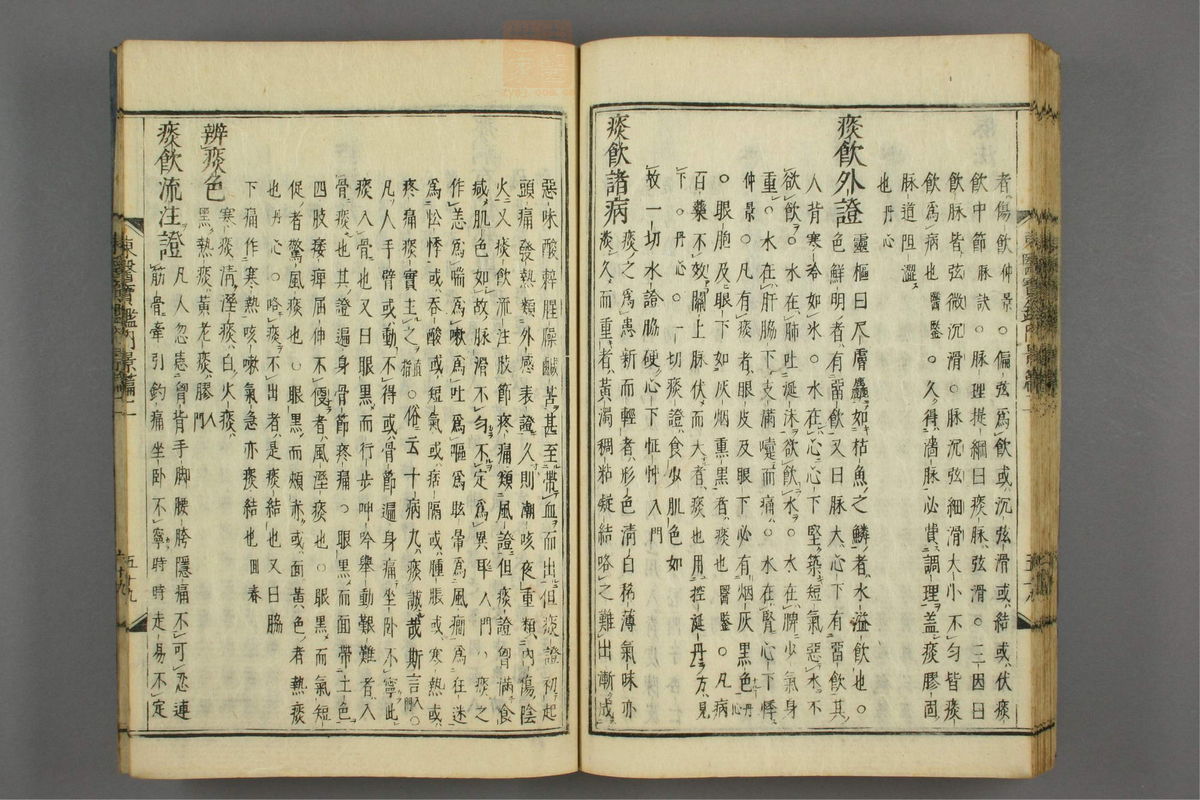 者傷飲仲景○偏弦爲飲或沉弦滑或結或伏痰
飲中節脉訣○脉理提綱曰痰脉弦滑○三因曰
飲脉皆弦微沉滑○脉沉弦細滑大小不勻皆痰
飲爲病也醫鑒○久得濇脉必費調理盖痰膠固
脉道阻澀
也丹心
痰飲外證
靈樞曰尺膚麤如枯魚之鱗者水溢飲也○
色鮮明者有留飲又曰脉大心下有留飲其
人背寒冷如氷○水在心心下堅築短氣惡水不
欲飲○水在肺吐涎沫欲飲水○水在脾少氣身
重○水在肝脇下支滿嚔而痛○水在腎心下悸
仲景○凡有痰者眼皮及眼下必有烟灰黑色丹心
○眼胞及眼下如灰烟熏黑者痰也醫鑒○凡病
百藥不效關上脉伏而大者痰也用控涎丹方見
下○丹心○一切痰證食少肌色如
故一切水證脇硬心下怔忡入門
痰飲諸病
痰之爲患新而輕者形色淸白稀薄氣味亦
淡久而重者黃濁稠粘凝結咯之難出漸成
惡味酸辣腥臊鹹苦甚至帶血而出但痰證初起
頭痛發熱類外感表證久則潮咳夜重類內傷陰
火又痰飲流注肢節疼痛類風證但痰證胷滿食
减肌色如故脉滑不勻不定爲異耳入門○痰之
作恙爲喘爲嗽爲吐爲嘔爲眩暈爲風癎爲狂迷
爲忪悸或吞酸或短氣或痞隔或腫脹或寒熱或
疼痛痰實主之直指○俗云十病九痰誠哉斯言入門○
凡人手臂或動不得或骨節遍身痛坐卧不寧此
痰入骨也又曰眼黑而行步呻吟擧動艱難者入
骨痰也其證遍身骨節疼痛○眼黑而面帶土色
四肢痿痺屈伸不便者風濕痰也○眼黑而氣短
促者驚風痰也○眼黑而頰赤或面黃色者熱痰
也丹心○咯痰不出者是痰結也又曰脇
下痛作寒熱咳嗽氣急亦痰結也回春
辨痰色
寒痰淸濕痰白火痰
黑熱痰黃老痰膠入門
痰飲流注證
凡人忽患胷背手脚腰胯隱痛不可忍連
筋骨牽引釣痛坐卧不寧時時走易不定
東醫寶鑑內景篇二
五十九